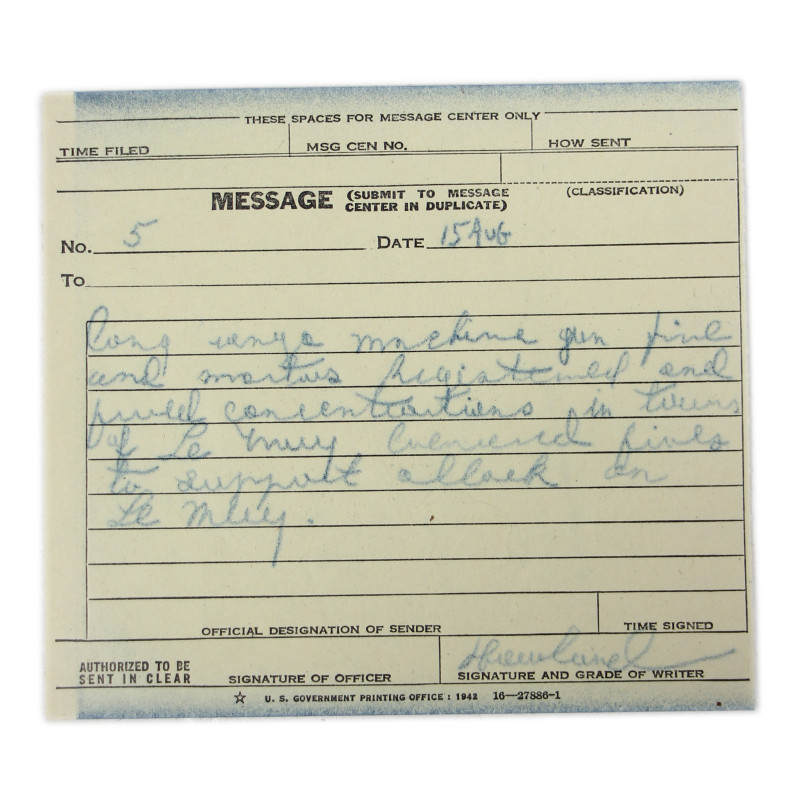 THESE SPACES FOR MESSAGE CENTER ONLY
TIME FILED MSG CEN NO. HOW SENT
MESSAGE (SUBMIT TO MESSAGE CENTER IN DUPLICATE) (CLASSIFICATION)
No. 5 DATE 15 AUG
To
long range machine gun fire
and mortars registered and
concentrations in town
of Le Muy fires
to support attack on
Le Muy.
OFFICIAL DESIGNATION OF SENDER TIME SIGNED
AUTHORIZED TO BE SENT IN CLEAR SIGNATURE OF OFFICER SIGNATURE AND GRADE OF WRITER
☆ U. S. GOVERNMENT PRINTING OFFICE : 1942 16—27886-1